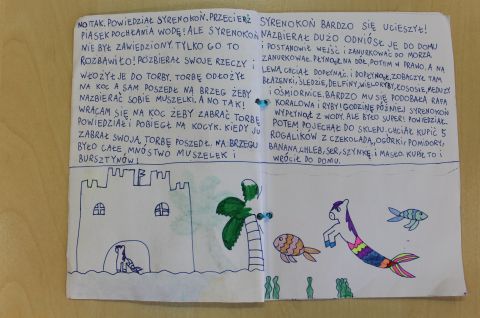 NO TAK. POWIEDZIAŁ SYRENOKOŃ. PRZECIERZ
PIASEK POCHŁANIA WODĘ! ALE SYRENOKOŃ
NIE BYŁ ZAWIEDZIONY. TYLKO GO TO
ROZBAWIŁO! POZBIERAŁ SWOJE RZECZY I
WŁOŻYŁ JE DO TORBY. TORBĘ ODŁOŻYŁ
NA KOC A SAM POSZEDŁ NA BRZEG ŻEBY
NAZBIERAĆ SOBIE MUSZELKI. A NO TAK!
WRACAM SIĘ NA KOC ŻEBY ZABRAĆ TORBĘ
POWIEDZIAŁ I POBIEGŁ NA KOCYK. KIEDY JUŻ
ZABRAŁ SWOJĄ TORBĘ POSZEDŁ. NA BRZEGU
BYŁO CAŁE MNÓSTWO MUSZELEK I
BURSZTYNÓW!
SYRENOKOŃ BARDZO SIĘ UCIESZYŁ!
NAZBIERAŁ DUŻO ODNIÓSŁ JE DO DOMU
I POSTANOWIŁ WEJŚĆ I ZANURKOWAĆ DO MORZA.
ZANURKOWAŁ. PŁYNĄŁ NA DÓŁ, POTYM W PRAWO, A NA
LEWA CHCIAŁ DOPŁYNĄĆ. I DOPŁYNĄŁ. ZOBACZYŁ TAM
BŁAZENKI, ŚLEDZIE, DELFINY, WIELORYBY, ŁOSOSIE, MEDUZY
I OŚMIORNICE. BARDZO MU SIĘ PODOBAŁA RAFA
KORALOWA I RYBY! GODZINĘ PÓŹNIEJ SYRENOKOŃ
WYPŁYNĄŁ Z WODY. ALE BYŁO SUPER! POWIEDZIAŁ.
POTEM POJECHAŁ DO SKLEPU. CHCIAŁ KUPIĆ 5
ROGALIKÓW Z CZEKOLADĄ, OGÓRKI, POMIDORY,
BANANA, CHLEB, SER, SZYNKĘ I MASŁO. KUPIŁ TO I
WRÓCIŁ DO DOMU.